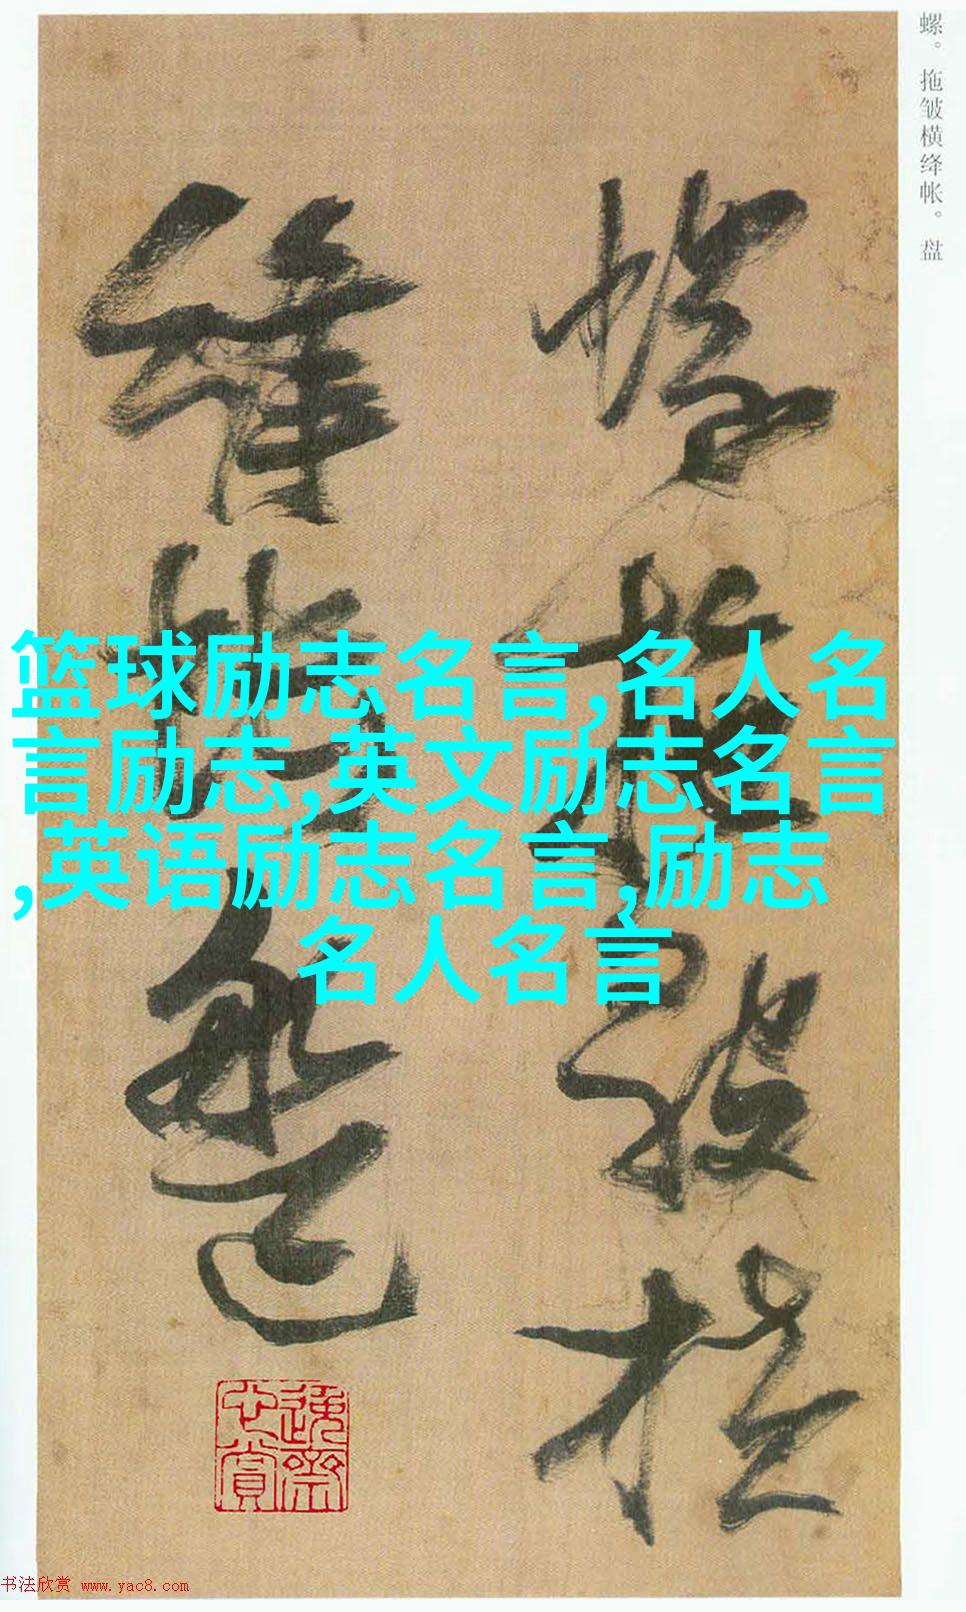 螺。拖皱横绛帐。盘
螺拖皺橫
絳帳盤
篮球励志名言,名人名
言励志,英文励志名言
,英语励志名言,励志
名人名言
书法欣赏 www.yac8.com